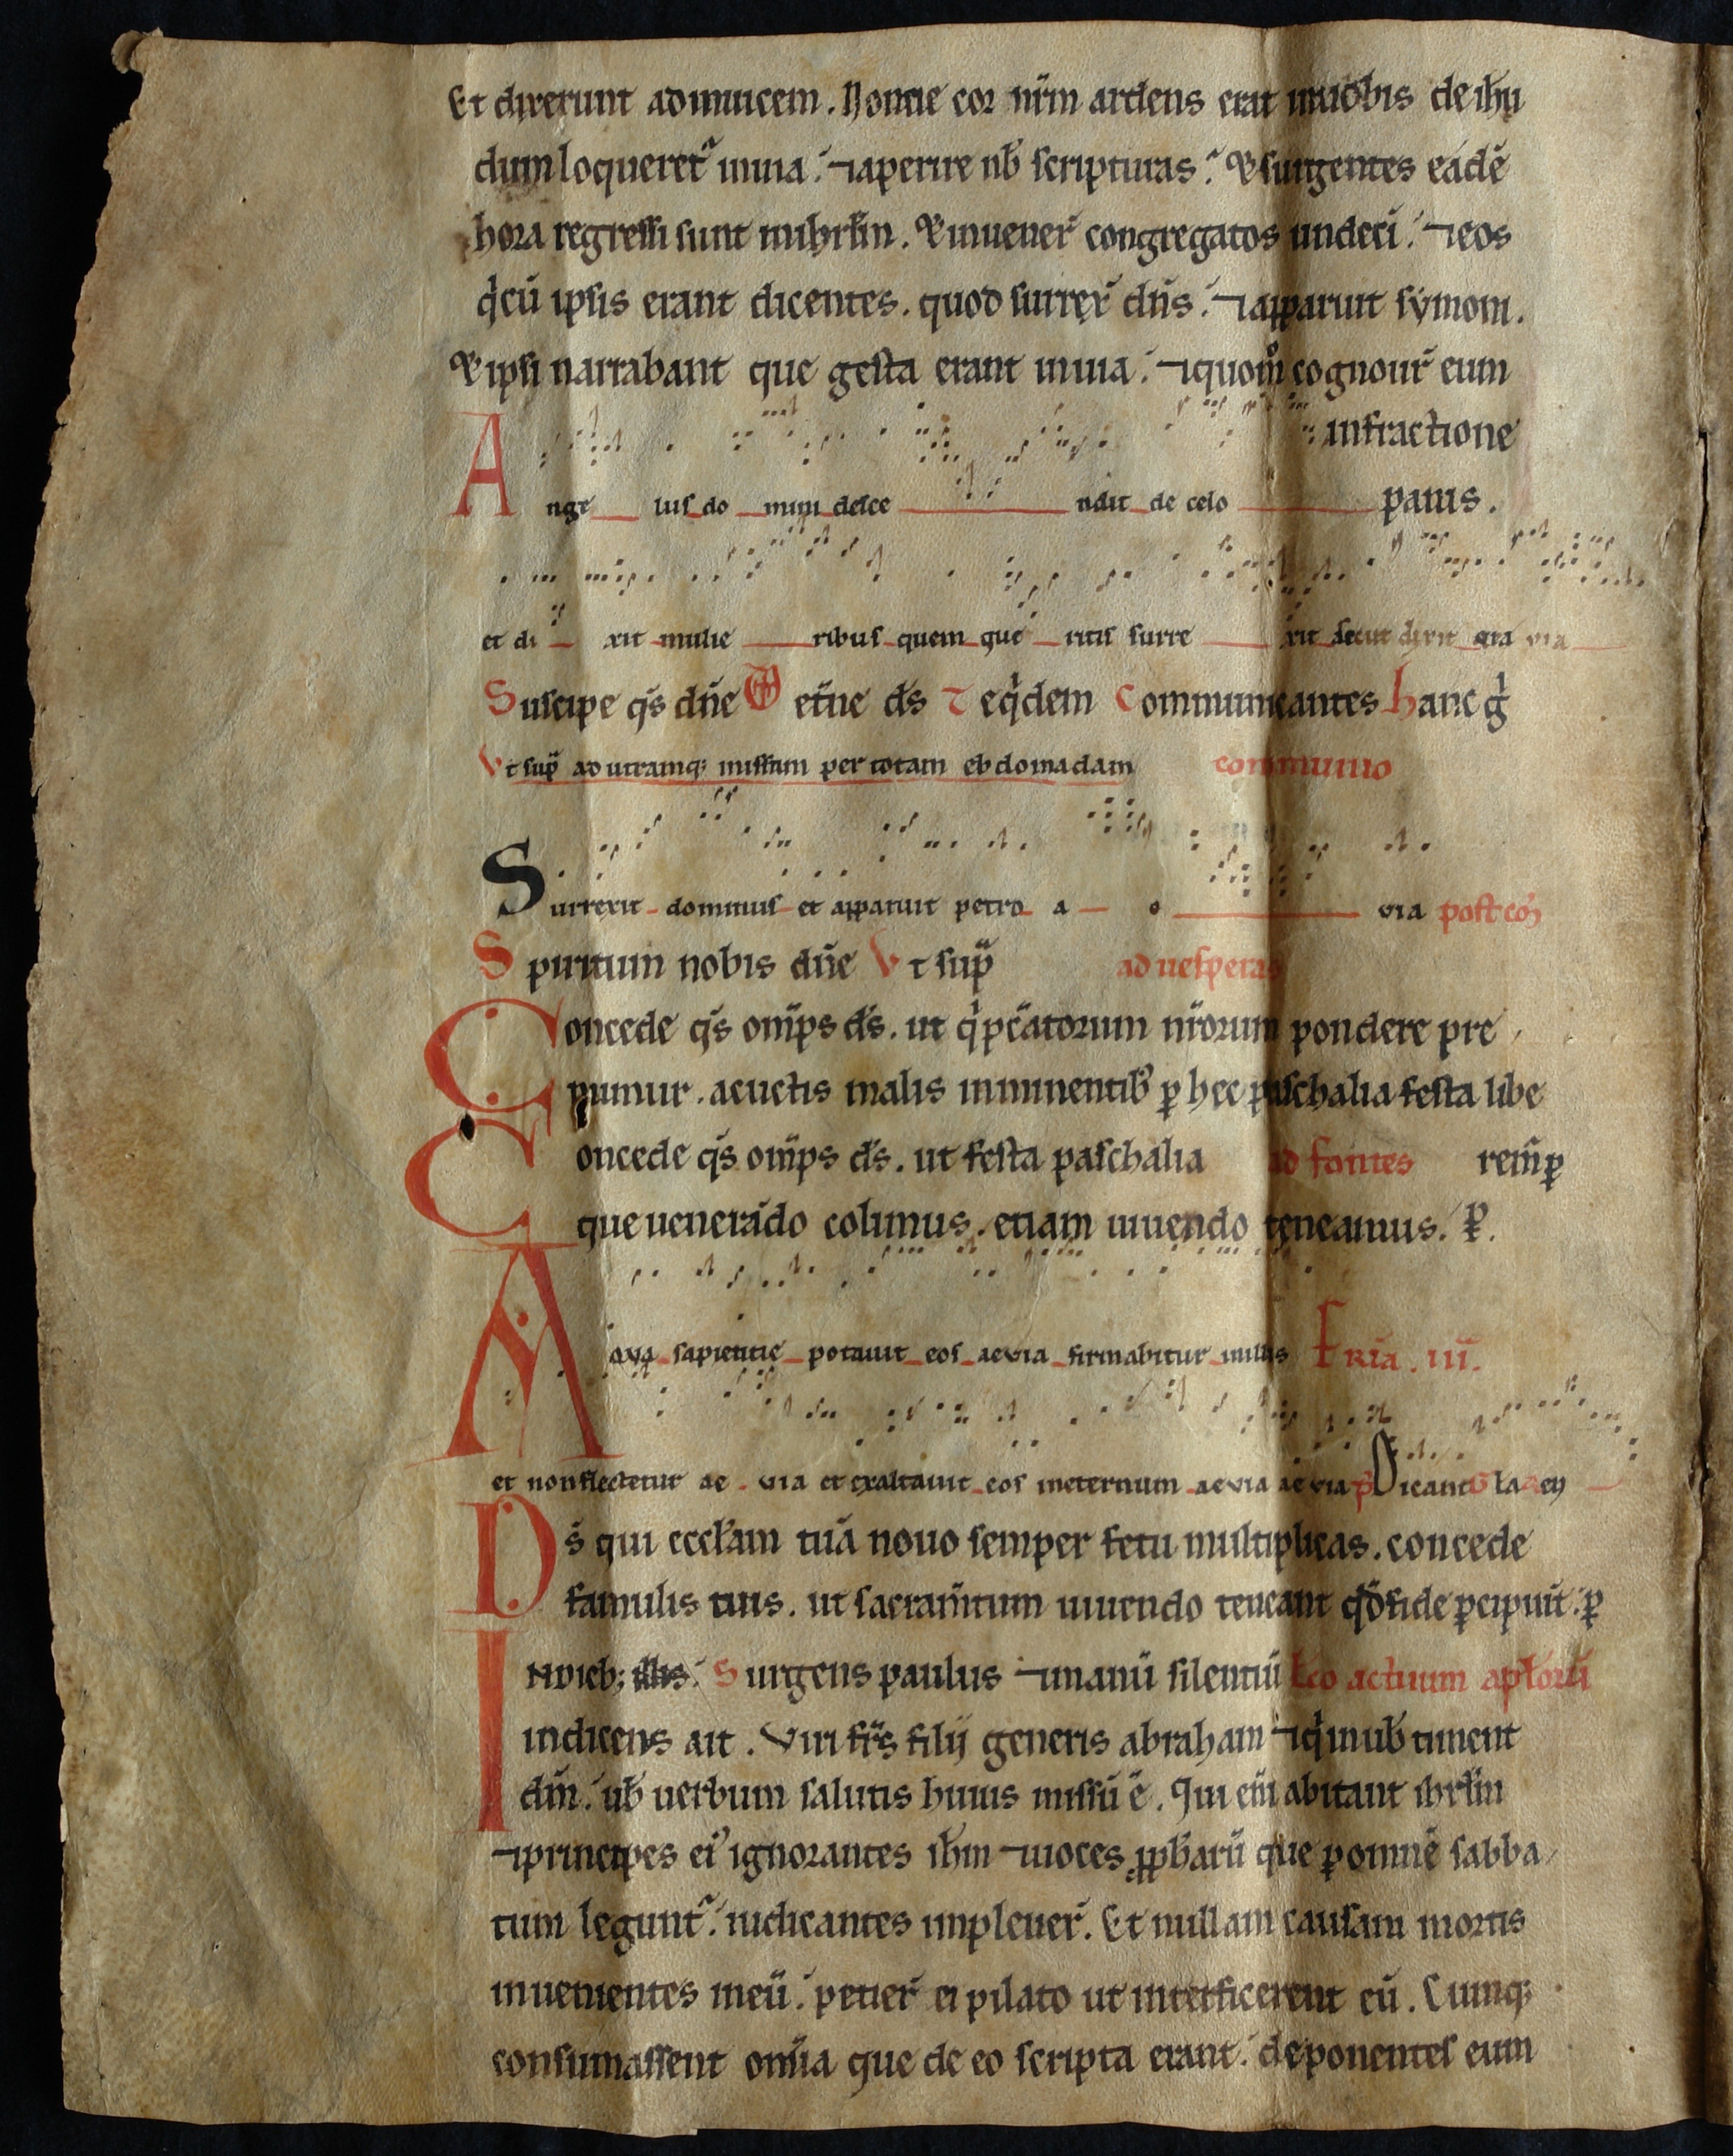 Et dixerunt adinuicem. Nonne cor nr̃m ardens erat inuobis de ihu
dum loqueret᷑ inuia. ⁊aperire nob̃ scripturas. Et surgentes eadē
hora regressi sunt inihrl̃m. Et inuener̃ congregatos undeci. ⁊eos
q̇cū ipsis erant dicentes. quod surrex̃ dñs. ⁊apparuit symoni.
Et ipsi narrabant que gesta erant inuia. ⁊quom̊ cognouer̃ eum
infractione
Ange lus do mini desce ndit de celo panis.
et di xit mulie ribus quem que ritis surre xit sicut dixit aia via
Suscipe q̃s dñe etñe ds̃ Te q̇dem Communicantes Hanc ġ
Vt sup̃ ad utramq; missam per totam ebdomadam communio
Surrexit dominus et apparuit petro a e via postcō
Spiritum nobis dñe Vt sup̃ ad uesperas
Concede q̃s omp̃s ds̃. ut q̇ pcc̃atorum nr̃orum pondere pre
mimur. acuctis malis imminentib᷒ ꝑ hec paschalia festa libe
Concede q̃s omp̃s ds̃. ut festa paschalia ad fontes rem̃ꝑ
que uenerãdo colimus. etiam uiuendo teneamus. P̲.
Aqva sapientie potauit eos aevia firmabitur inillis Fria. iii.
et non flectetur ae via et exaltauit eos ineternum aevia aevia Dicant
Ds̃ qui eccl̃am tuã nouo semper fetu multiplicas. concede
famulis tuis. ut sacram̃tum uiuendo teneant qd̃ fide ꝑcipuit. ꝑ
INdieb; illis. Surgens paulus ⁊manū silentiū Lco actuum apl̃orū
indicens ait. Viri fr̃s filij generis abraham ⁊q̇ inuob̃ timent
dm̃. uob̃ uerbum salutis huius missū ē. Qui eni abitant ihrl̃m
⁊principes ei᷒ ignorantes ihm̃ ⁊uoces ꝓph̃arū que ꝑ omnē sabba
tum legunt᷑. iudicantes impleuer̃. Et nullam causam mortis
inuenientes ineū. petier̃ a pilato ut interficerent eū. Cumq;
consumassent om̃ia que de eo scripta erant. deponentes eum